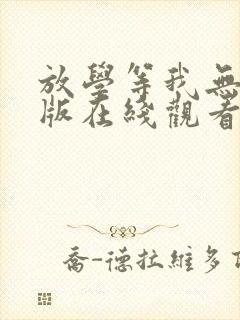 放學等我無
版在綫觀看
喬-德拉維多